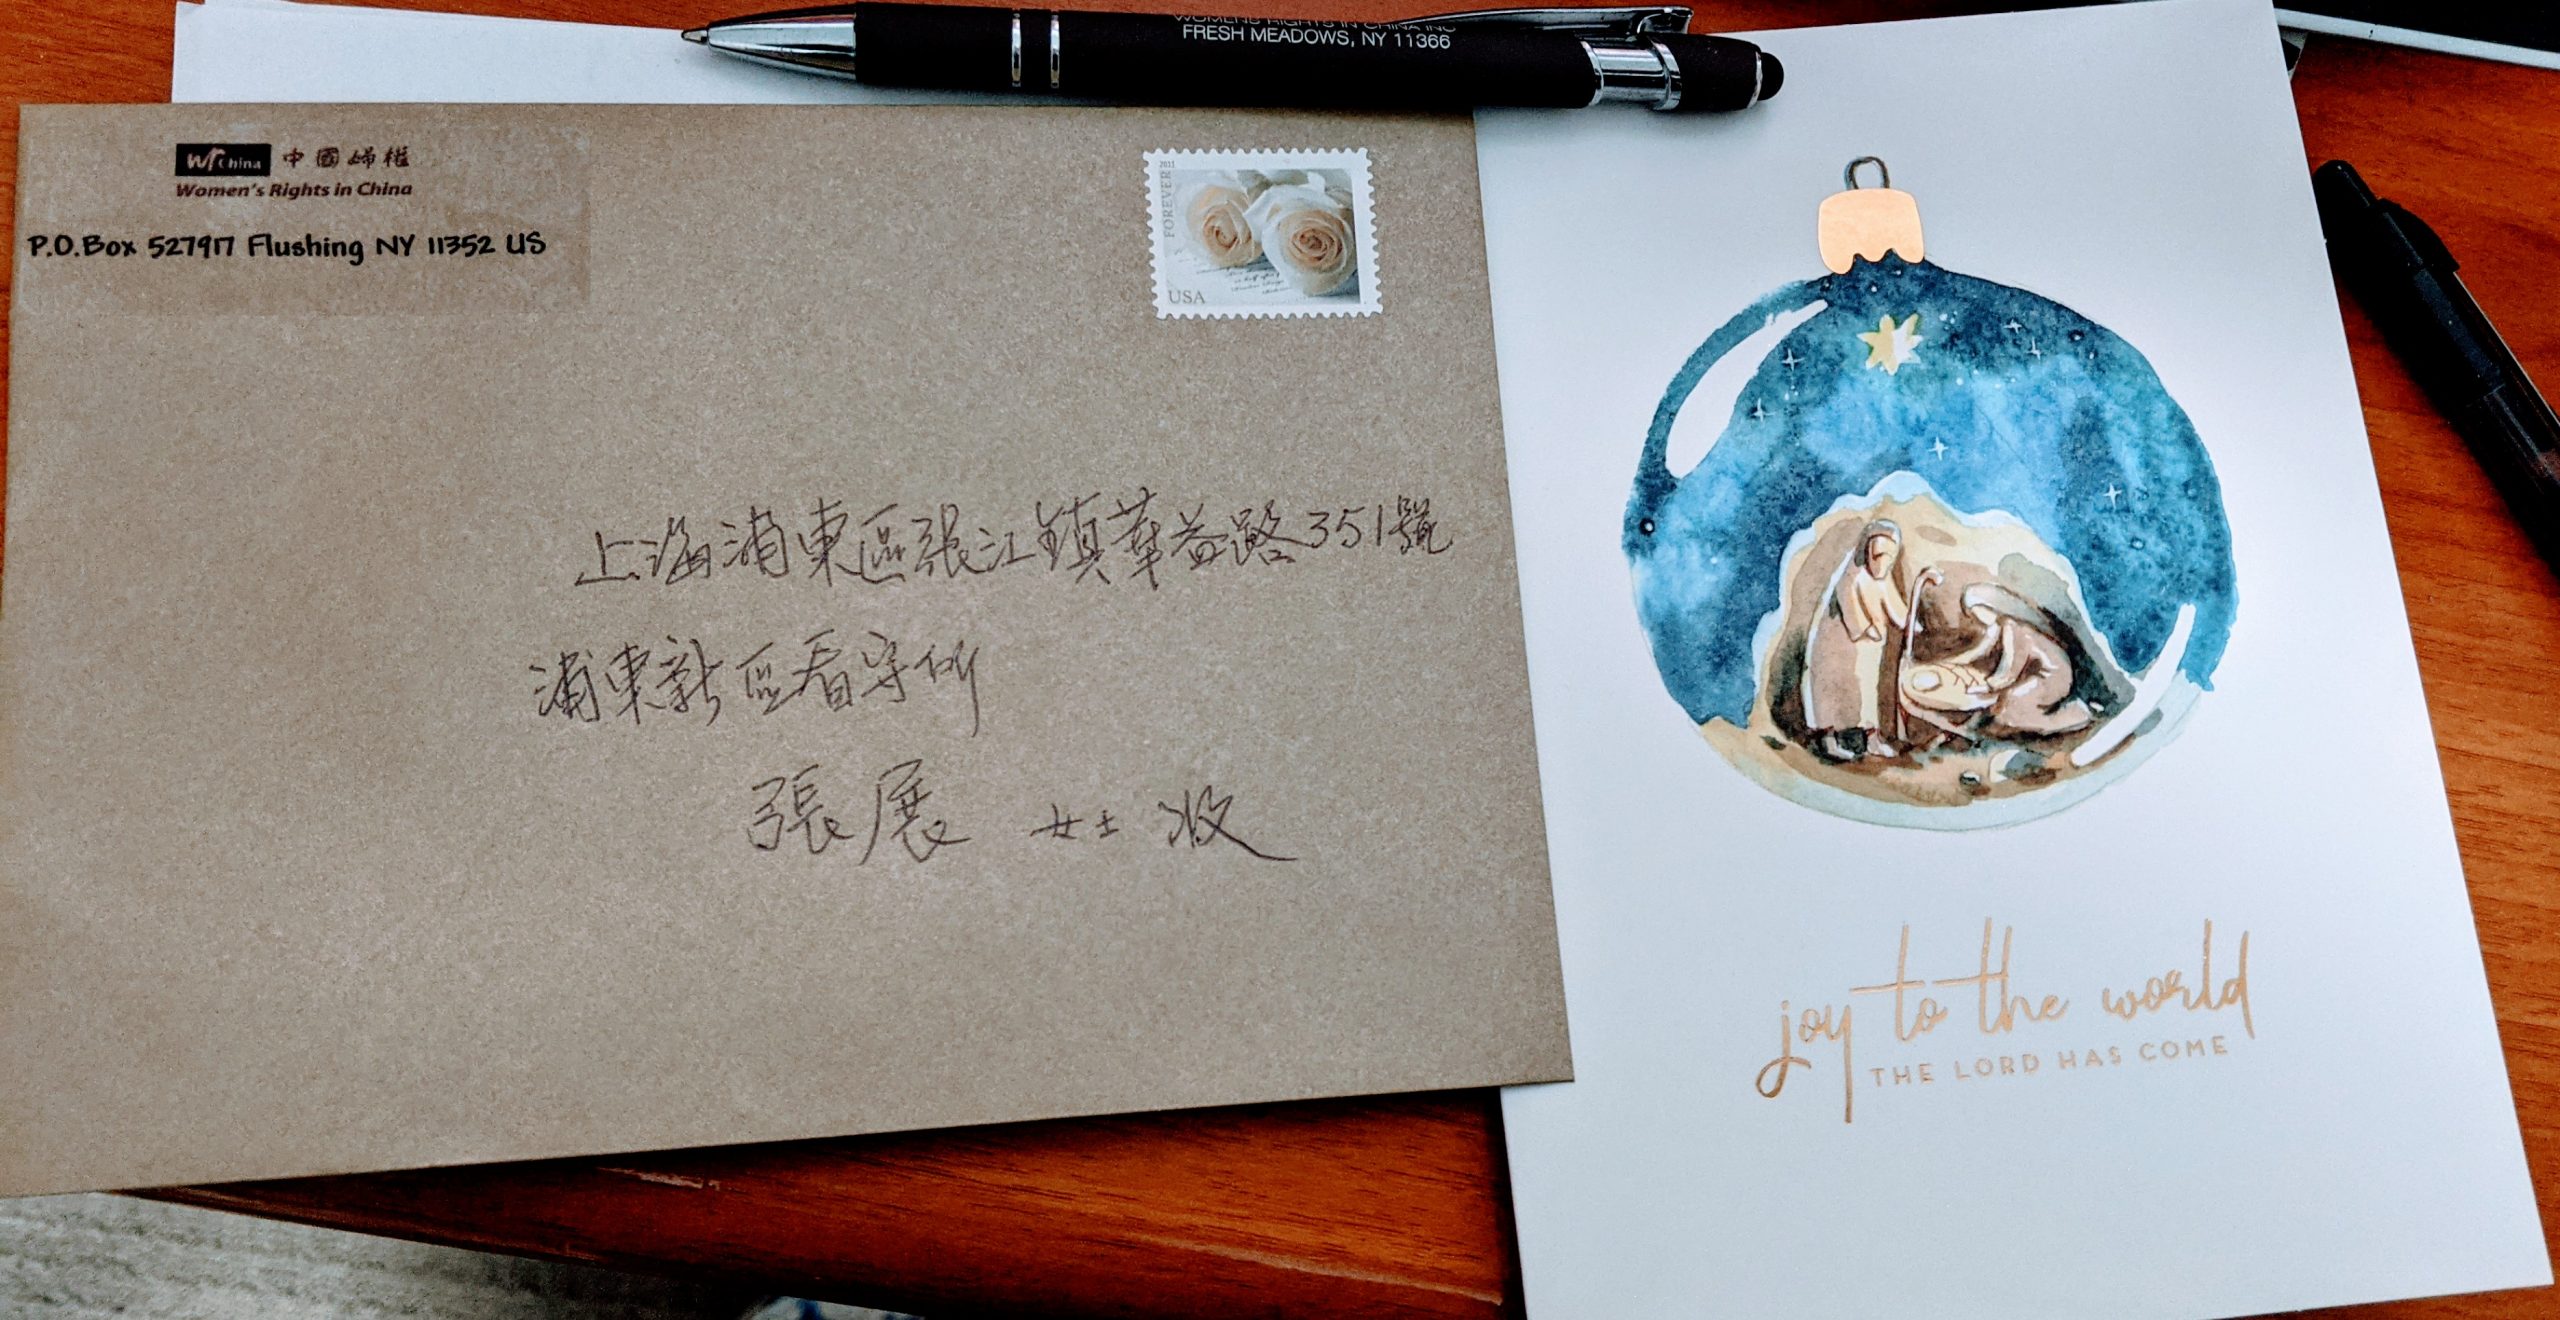 WOMEN'S RIGHTS IN CHINA INC
FRESH MEADOWS, NY 11366
wrchina 中國婦權
Women's Rights in China
P.O.Box 527917 Flushing NY 11352 US
2011
FOREVER
USA
上海浦東區張江鎮華益路351號
浦東新區看守所
張展 女士 收
joy to the world
THE LORD HAS COME